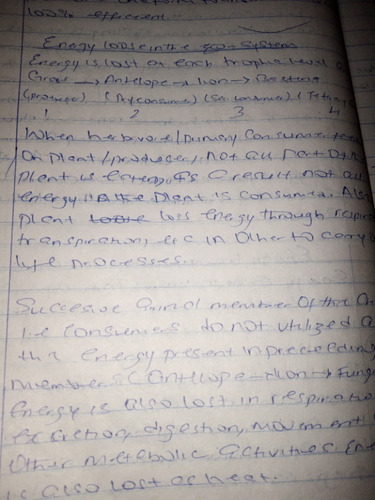 100% efficient.
Energy loose in the eco-System
Energy is lost at each trophic level
Grass → Antelope → lion → Bacteria
(producer) (Pry consumer) (Sec consumer) (
1 2 3 4
When herbivore/primary Consumer feed
On plant/producer, not all part Of the
plant is eaten, As a result not all
energy in the plant is consumed. Also
plant loss energy through respir
transpiration, etc in Other to carry
life processes.
Succesive animal member Of the
i.e Consumers do not utilized a
the energy present in preceeding
member (Antelope → lion → Fungi
Energy is also lost in respiratio
excretion, digestion, movement
Other metabolic activities. En
is also lost as heat.